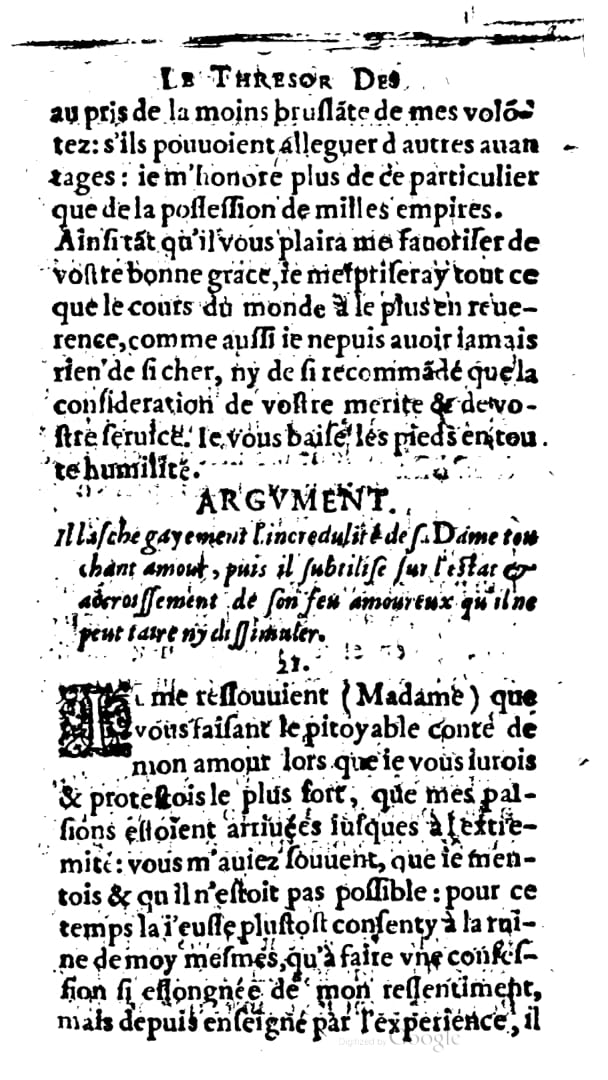 LE THRESOR DES
au pris de la moins bruslãte de mes volõ-
tez: s'ils pouuoient alleguer d autres auan
tages: ie m'honore plus de ce particulier
que de la possession de milles empires.
Ainsi tãt qu'il vous plaira me fauoriser de
vostre bonne grace, ie mespriseray tout ce
que le cours du monde à le plus en reue-
rence, comme aussi ie ne puis auoir iamais
rien de si cher, ny de si recommãdé que la
consideration de vostre merite & de vo-
stre seruice. Ie vous baise les pieds en tou
te humilité.
ARGVMENT.
Il lasche gayement l'incredulité de sa Dame tou
chant amour, puis il subtilise sur l'estat &
accroissement de son feu amoureux qu'il ne
peut taire ny dissimuler.
21.
me ressouuient (Madame) que
vous faisant le pitoyable conte de
mon amour lors que ie vous iurois
& protestois le plus fort, que mes pas-
sions estoient arriuées iusques à l'extre-
mité: vous m'auiez souuent, que ie men-
tois & qu il n'estoit pas possible: pour ce
temps la i'eusse plustost consenty à la rui-
ne de moy mesmes, qu'à faire vne confes-
sion si eslongnée de mon ressentiment,
mais depuis enseigné par l'experience, il
Digitized by Google